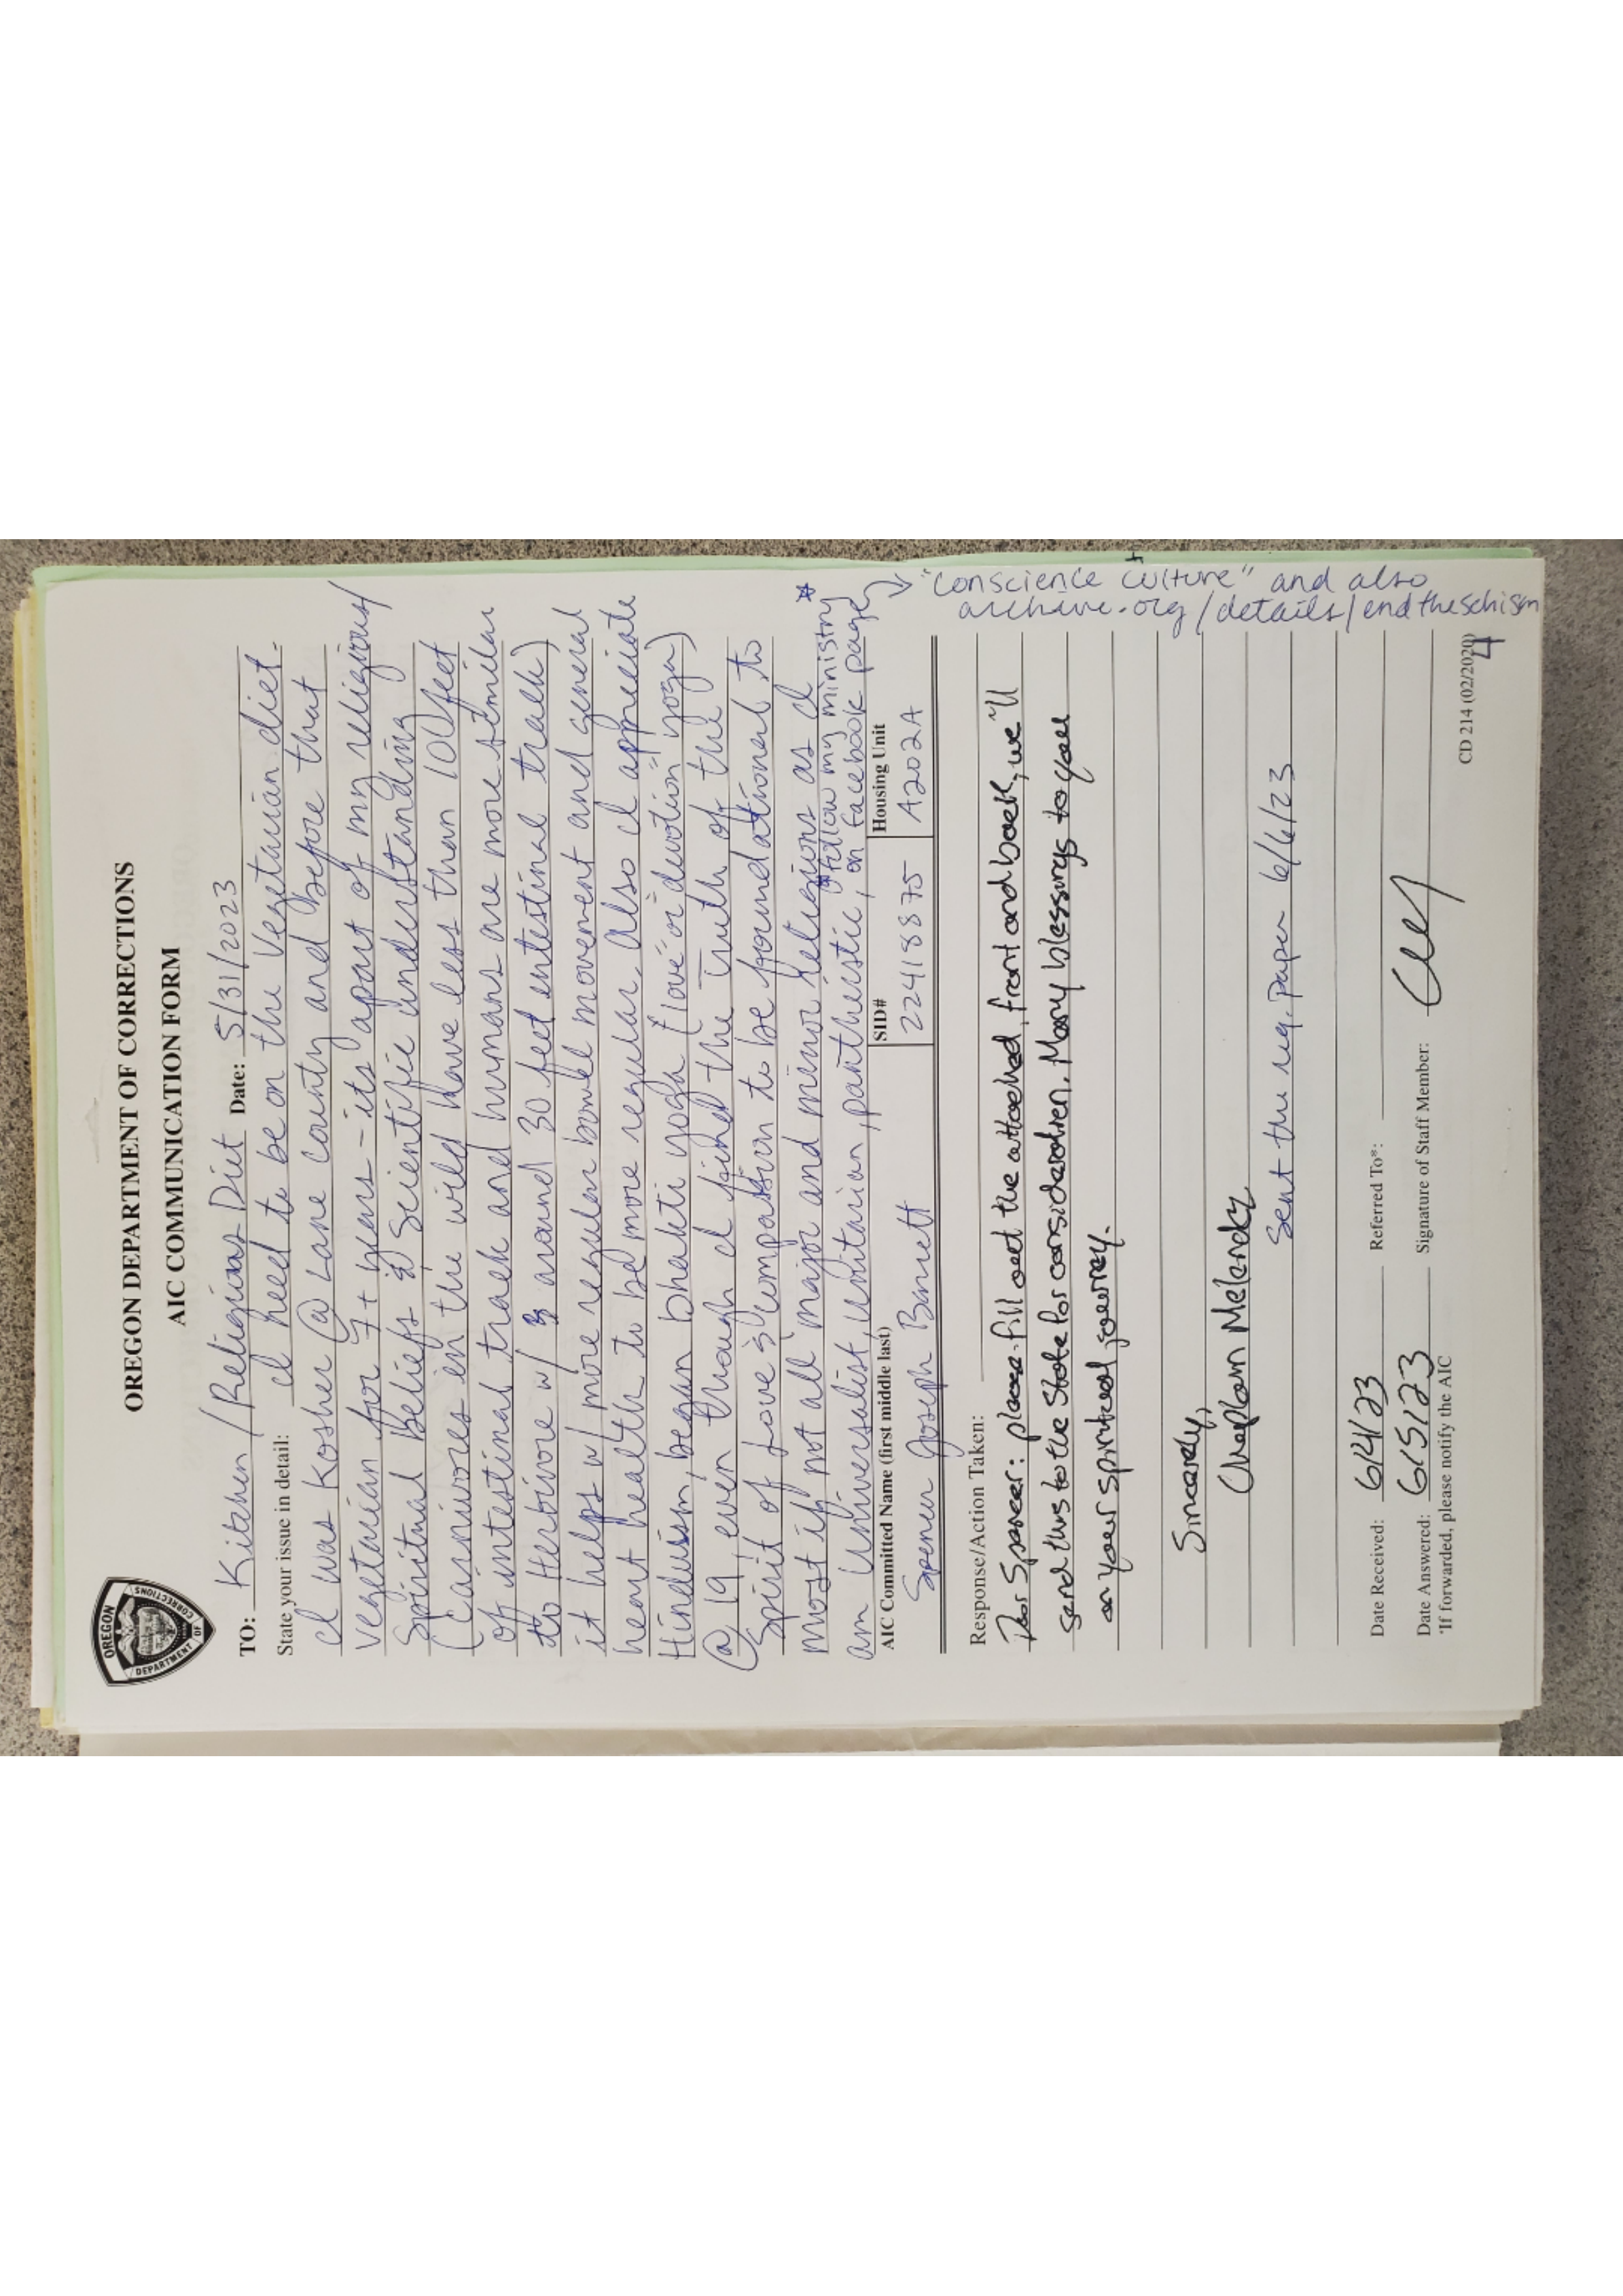 OREGON DEPARTMENT OF CORRECTIONS
AIC COMMUNICATION FORM
OREGON
DEPARTMENT OF
CORRECTIONS
TO: Kitchen / Religious Diet Date: 5/31/2023
State your issue in detail: I need to be on the Vegetarian diet.
I was Kosher @ Lane county and before that
vegetarian for 7+ years - its apart of my religious/
Spiritual Beliefs & Scientific understanding
(Carnivores in the wild have less than 10 feet
of intestinal track and humans are more similar
to Herbivore w/ around 30 feet intestinal track)
it helps w/ more regular bowel movement and general
heart health to be more regular. Also I appreciate
Hinduism, began bhakti yoga ("love" or "devotion" yoga)
@ 19, even though I find the Truth of the
Spirit of Love & Compassion to be foundational to
most if not all major and minor religions as I *
am Universalist, Unitarian, pantheistic, *follow my ministry
on Facebook page
"Conscience Culture" and also
archive.org/details/endtheschism
AIC Committed Name (first middle last) SID# Housing Unit
Spencer Joseph Barnett 22418875 A202A
Response/Action Taken:
Dear Spencer: please fill out the attached, front and back, we'll
send this to the State for consideration. Many blessings to you
on your spiritual journey.
Sincerely,
Chaplain Melendez
Sent the req. paper 6/6/23
Date Received: 6/4/23 Referred To*:
Date Answered: 6/5/23 Signature of Staff Member:
*If forwarded, please notify the AIC
CD 214 (02/2020)
4